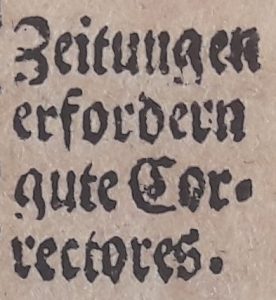 Zeitungen
erfordern
gute Cor-
rectores.